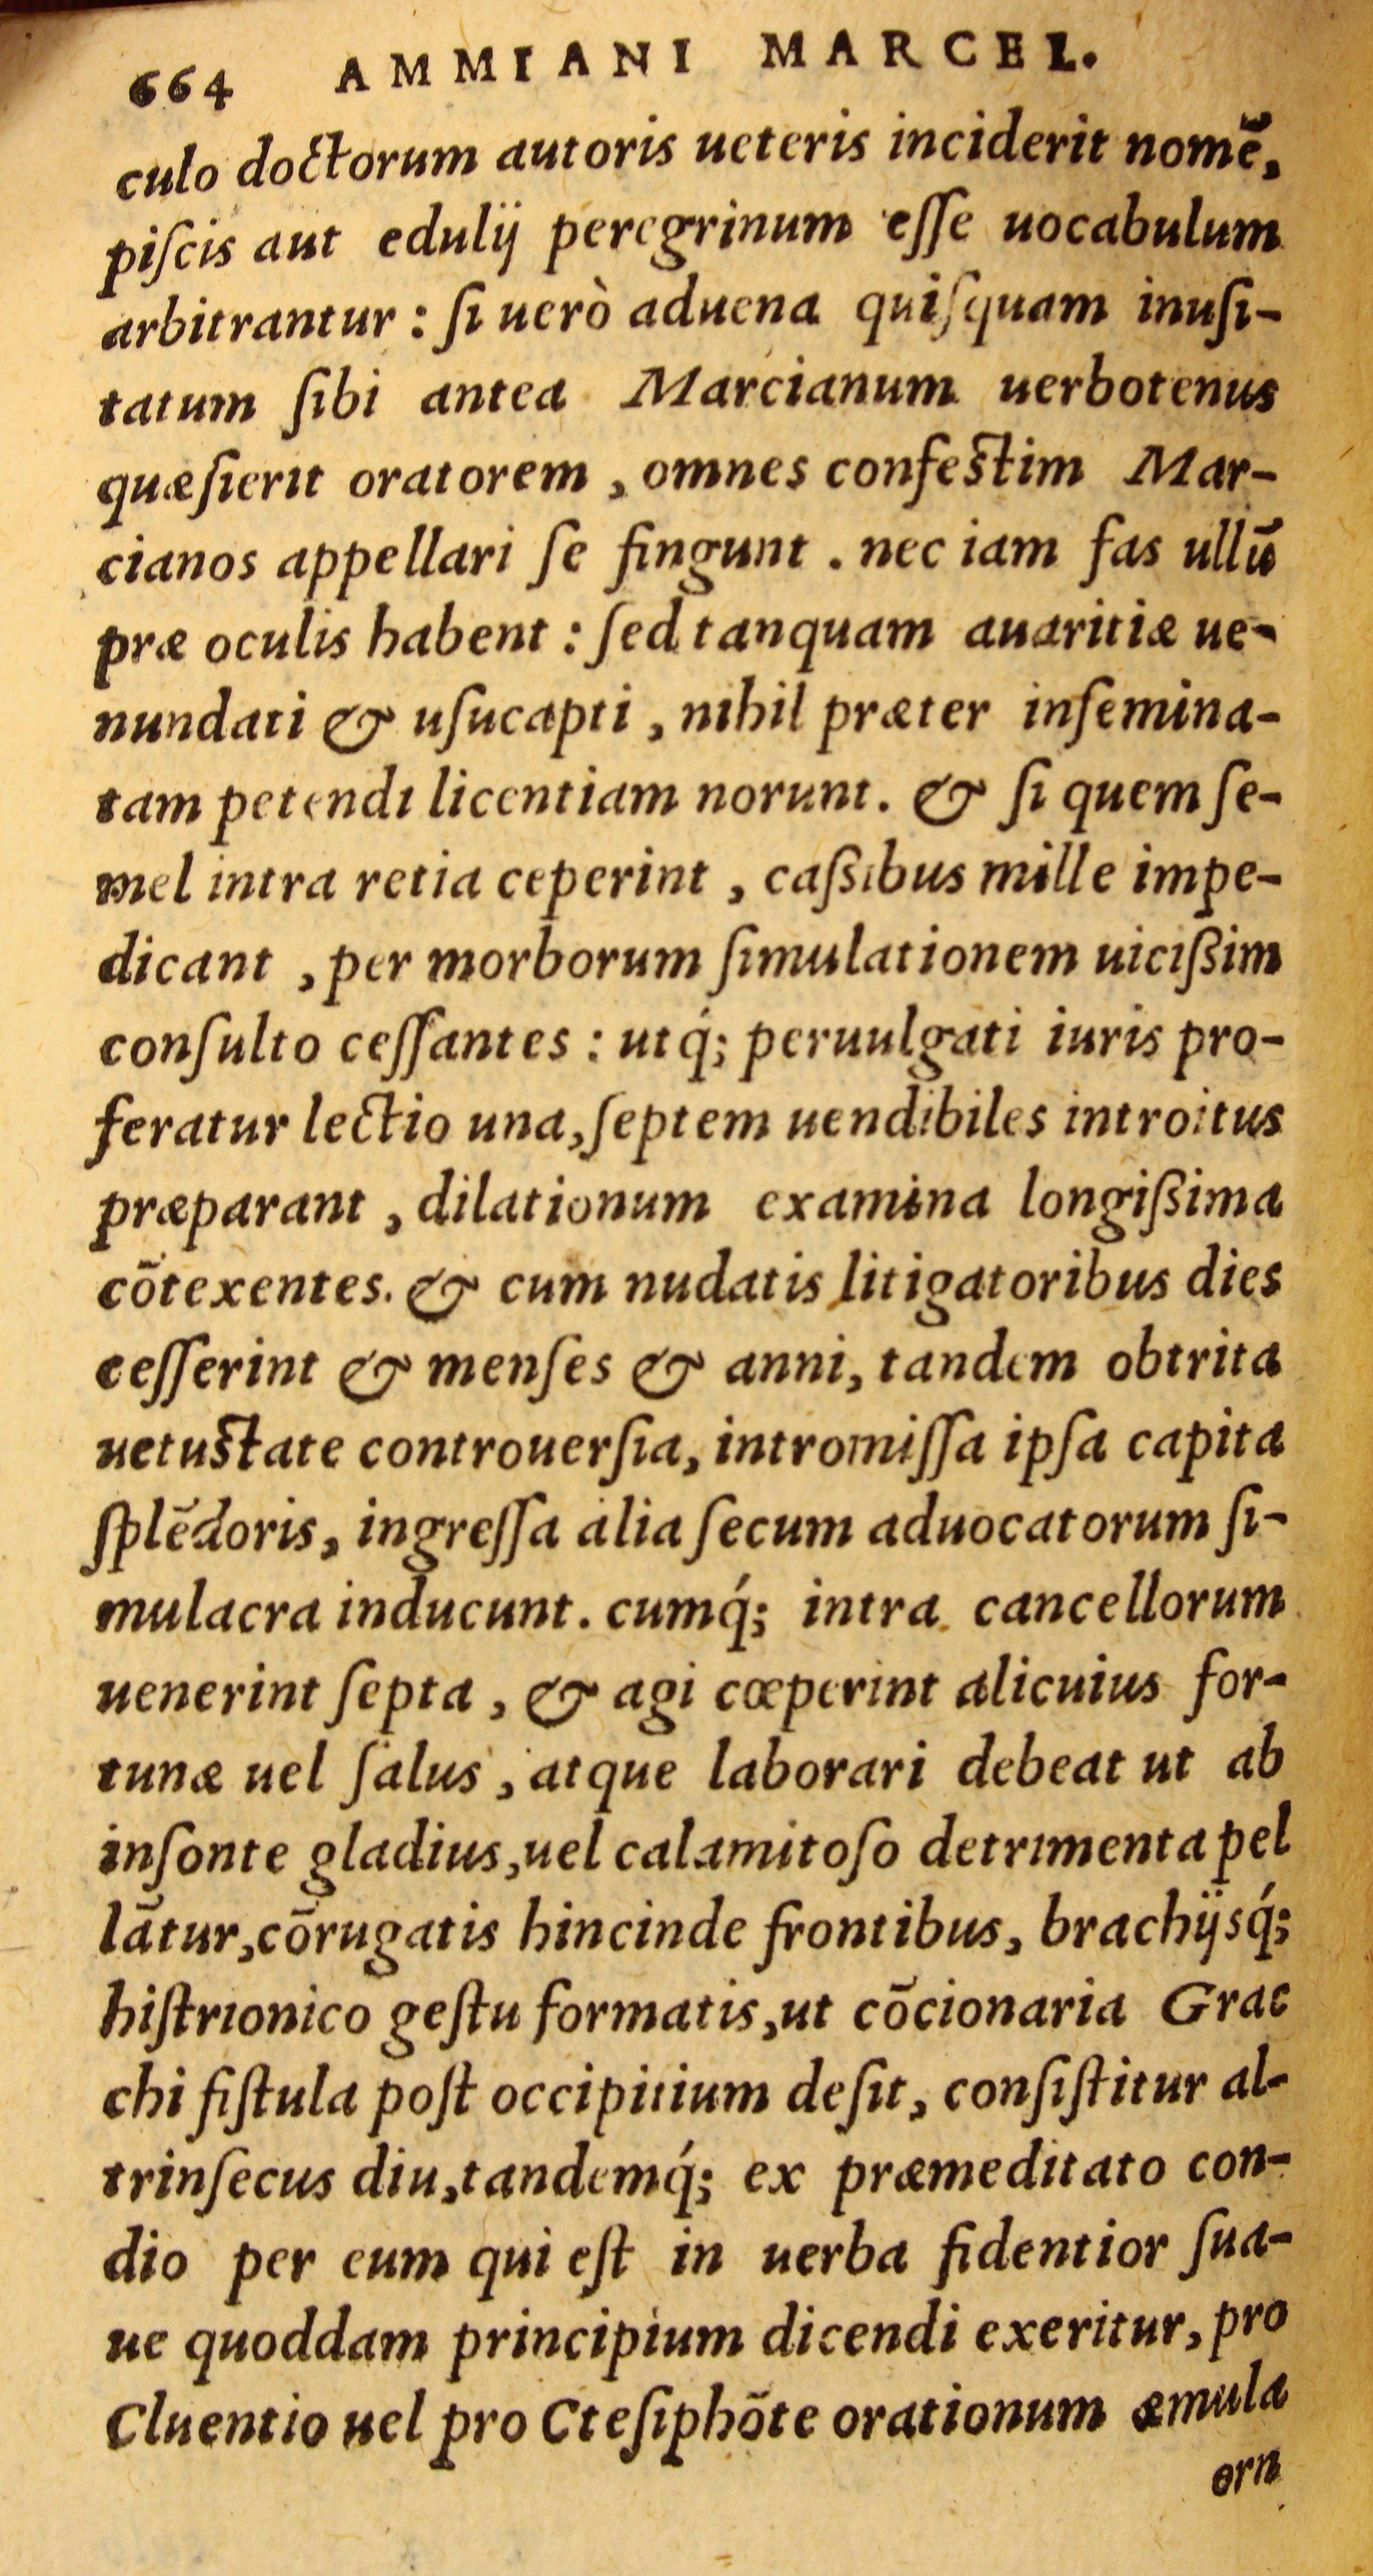 664 AMMIANI MARCEL.
culo doctorum autoris ueteris inciderit nomē,
piſcis aut edulij peregrinum eſſe uocabulum
arbitrantur : ſi uerò aduena quiſquam inuſi-
tatum ſibi antea Marcianum uerbotenus
quæſierit oratorem , omnes confeſtim Mar-
cianos appellari ſe fingunt . nec iam fas ullū
præ oculis habent : ſed tanquam auaritiæ ue-
nundati & uſucapti , nihil præter inſemina-
tam petendi licentiam norunt. & ſi quem ſe-
mel intra retia ceperint , caßibus mille impe-
dicant , per morborum ſimulationem uicißim
conſulto ceſſantes : utq́; peruulgati iuris pro-
feratur lectio una, ſeptem uendibiles introitus
præparant , dilationum examina longißima
cōtexentes. & cum nudatis litigatoribus dies
ceſſerint & menſes & anni, tandem obtrita
uetuſtate controuerſia, intromiſſa ipſa capita
ſplēdoris, ingreſſa alia ſecum aduocatorum ſi-
mulacra inducunt. cumq́; intra cancellorum
uenerint ſepta , & agi cœperint alicuius for-
tunæ uel ſalus , atque laborari debeat ut ab
inſonte gladius, uel calamitoſo detrimenta pel
lātur, cōrugatis hincinde frontibus, brachijsq́;
hiſtrionico geſtu formatis, ut cōcionaria Grac
chi fiſtula poſt occipitium deſit, conſiſtitur al-
trinſecus diu, tandemq́; ex præmeditato con-
dio per eum qui eſt in uerba fidentior ſua-
ue quoddam principium dicendi exeritur, pro
Cluentio uel pro Cteſiphōte orationum æmula
orn